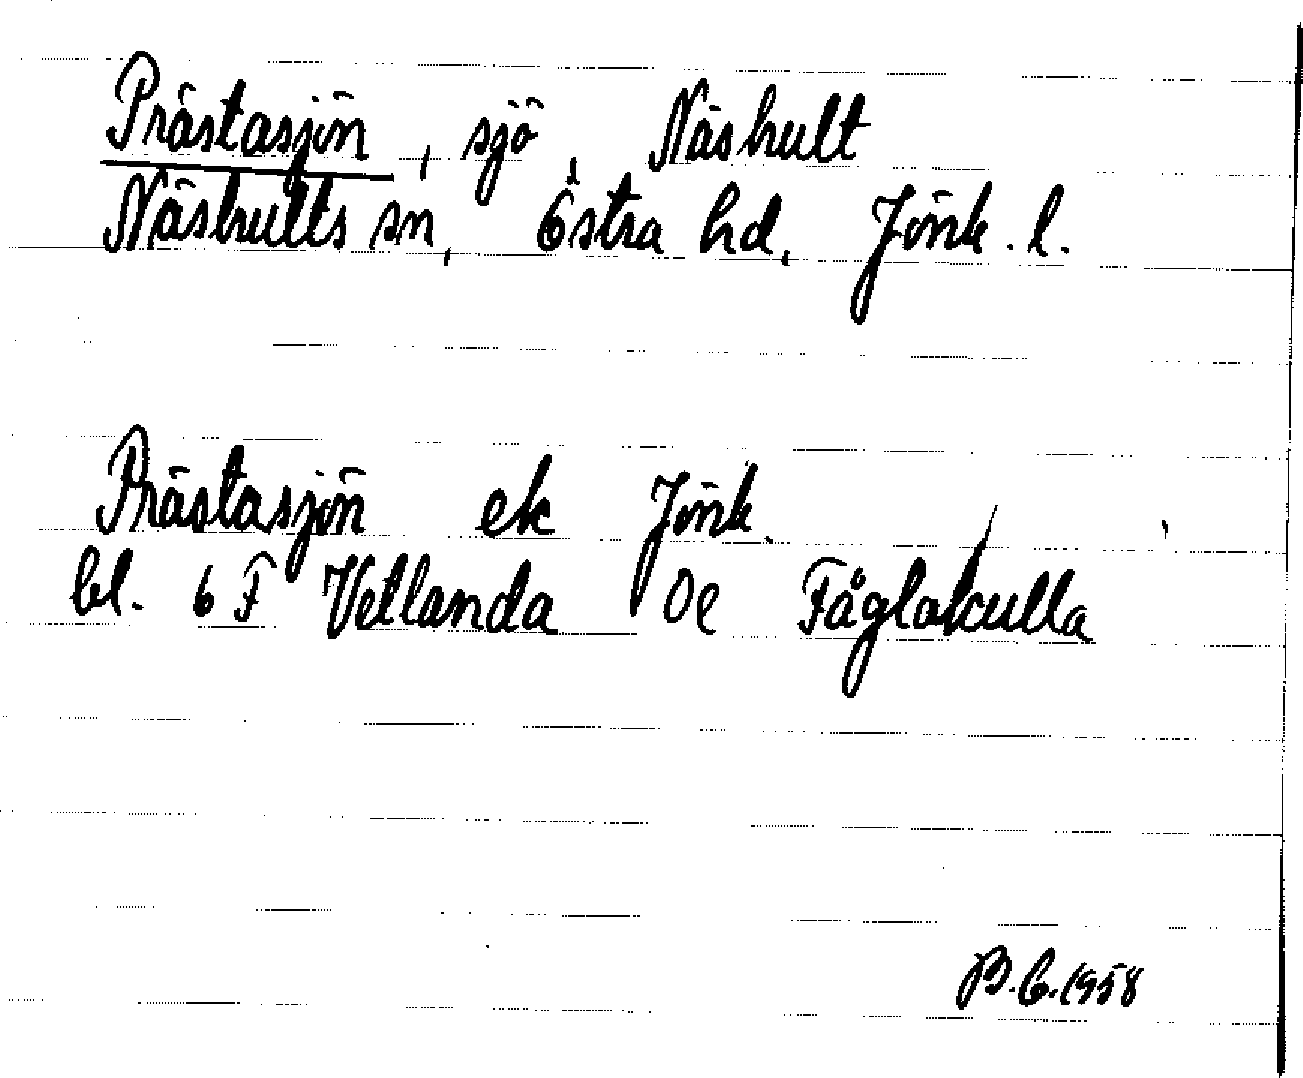 Prästasjön, sjö, Näshult
Näshults sn, Östra hd, Jönk. l.
Prästasjön ek Jönk.
bl. 6 F Vetlanda 0e Fåglakulla
B.C. 1958